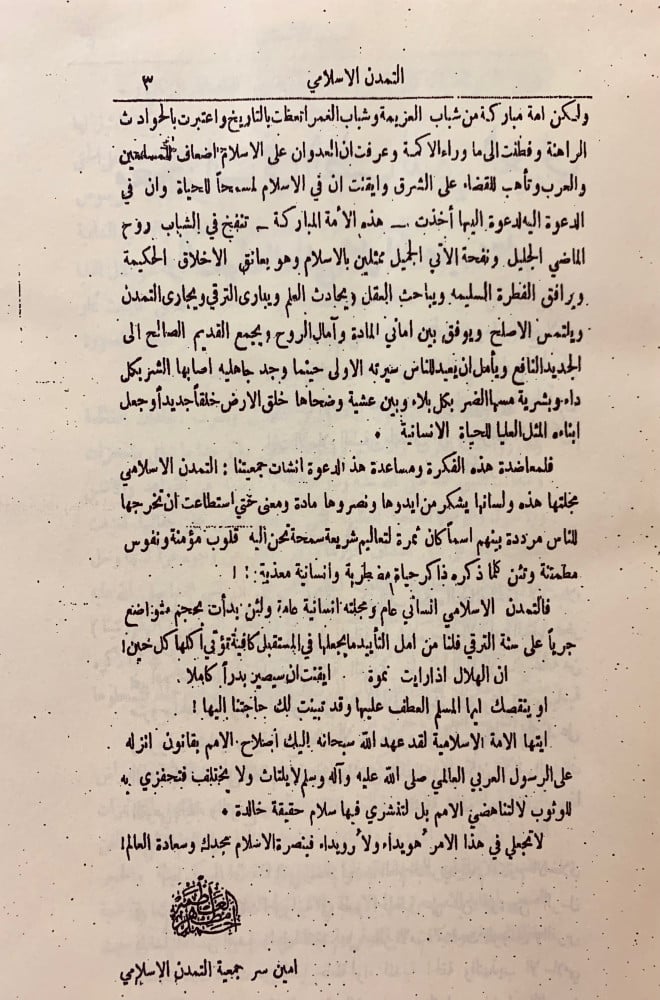 التمدن الاسلامي ٣
ولكن امة مباركة من شباب العزيمة وشباب العمر اتعظت بالتاريخ واعتبرت بالحوادث
الراهنة وفطنت الى ما وراء الاكمة وعرفت ان العدوان على الاسلام اضعاف للمسلمين
والعرب وتأهب للقضاء على الشرق وايقنت ان في الاسلام لمسحاً للحياة وان في
الدعوة اليه لدعوة اليها أخذت — هذه الأمة المباركة — تنفخ في الشباب روح
الماضي الجليل ونفحة الآتي الجميل ممثلين بالاسلام وهو يعانق الاخلاق الحكيمة
ويرافق الفطرة السليمه ويباحث العقل ويحادث العلم ويبارى الترقي ويجارى التمدن
ويلتمس الاصلح ويوفق بين اماني المادة وآمال الروح ويجمع القديم الصالح الى
الجديد النافع ويأمل ان يعيد للناس سيرته الاولى حينما وجد جاهليه اصابها الشر بكل
داء وبشرية مسها الضر بكل بلاء وبين عشية وضحاها خلق الارض خلقاً جديداً وجعل
ابناءه المثل العليا للحياة الانسانية .
فلمعاضدة هذه الفكرة ومساعدة هذ الدعوة انشات جمعيتنا : التمدن الاسلامي
مجلتها هذه ولسانها يشكر من ايدوها ونصروها مادة ومعنى حتى استطاعت ان تخرجها
للناس مرددة بينهم اسماً كان ثمرة لتعاليم شريعة سمحة تحن اليه قلوب مؤمنة ونفوس
مطمئنة وتئن كلما ذكره ذاكر حياة مضطربة وانسانية معذبة . ! !
فالتمدن الاسلامي انساني عام ومجلته انسانية عامة ولئن بدأت بحجم متواضع
جرياً على سنة الترقي فلنا من امل التأييد ما يجعلها في المستقبل كافية تؤتي أكلها كل حين !
ان الهلال اذا رايت نموة ايقنت ان سيصير بدراً كاملا .
او ينقصك ايها المسلم العطف عليها وقد تبينت لك حاجتنا اليها !
ايتها الامة الاسلامية لقد عهد الله سبحانه اليك اصلاح الامم بقانون انزله
على الرسول العربي العالمي صلى الله عليه وآله وسلم لا يلتاث ولا يختلف فتحفزي به
للوثوب لا لتناهضي الامم بل لتنشري فيها سلام حقيقة خالدة .
لا تجعلي في هذا الامر هويداء ولا رويداء فبنصرة الاسلام مجدك وسعادة العالم !
امين سر جمعية التمدن الاسلامي